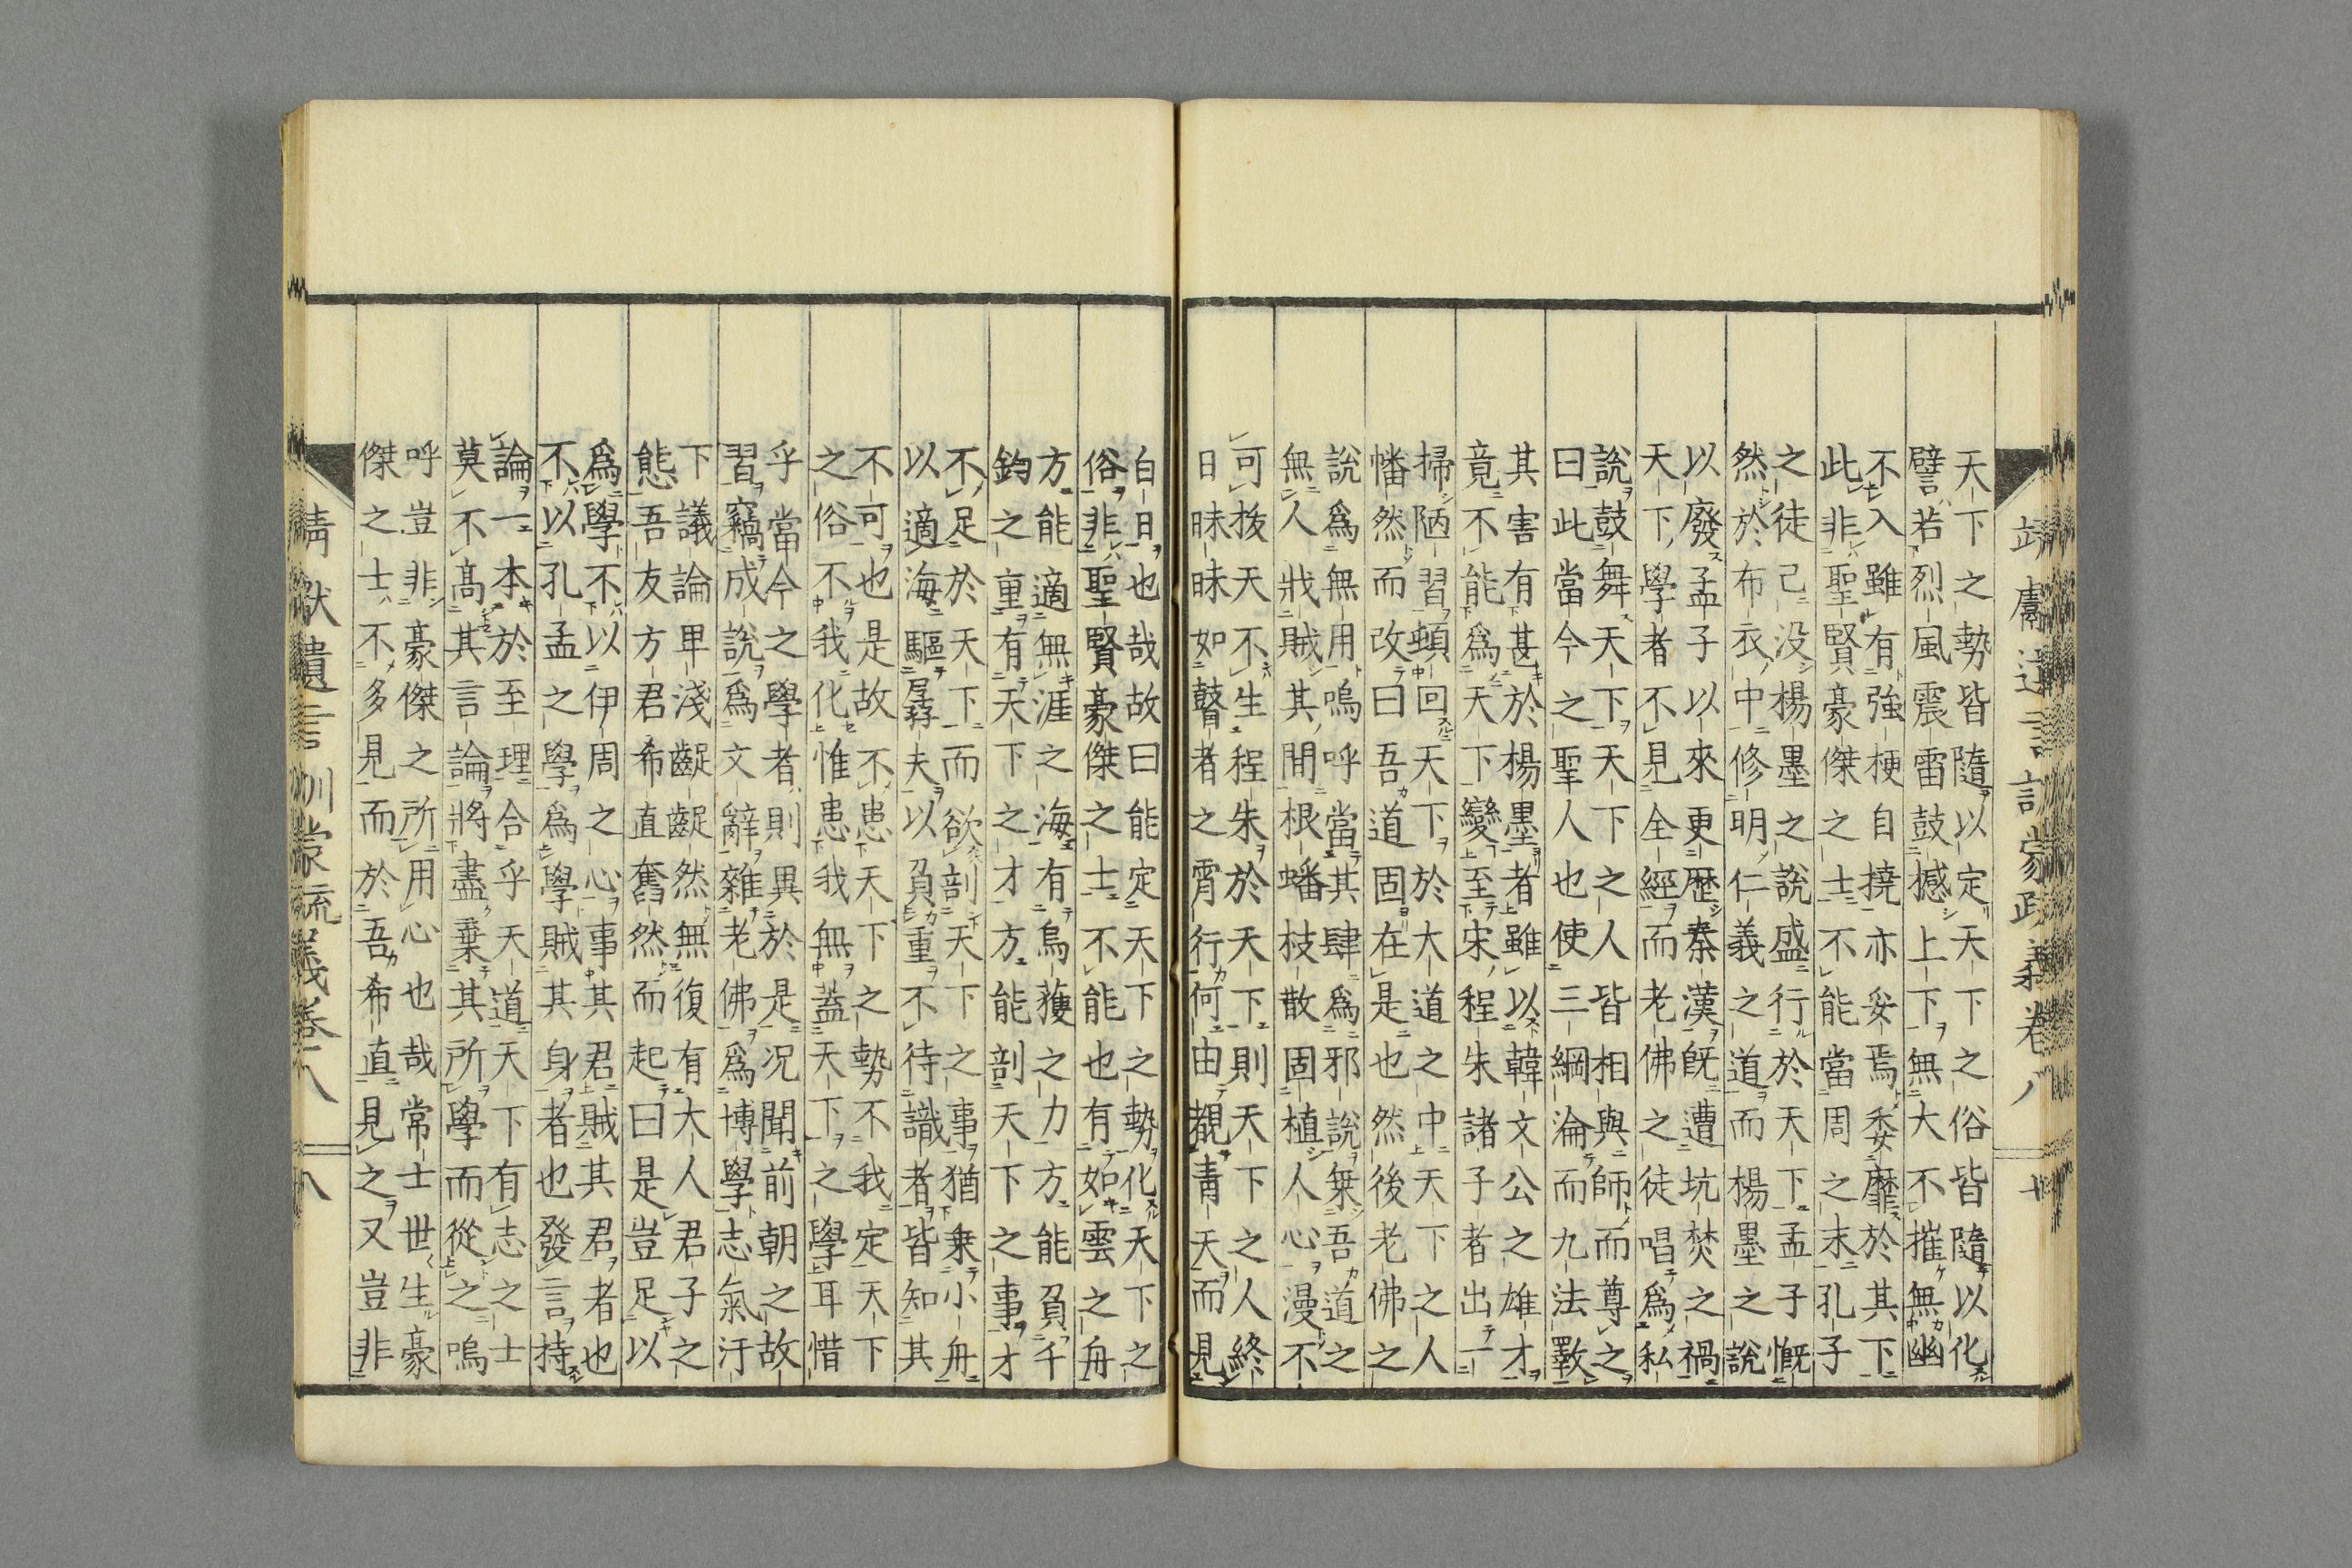 天下之勢皆隨以定天下之俗皆隨以化
譬若烈風震雷鼓撼上下無大不摧無幽
不入雖有強梗自撓亦妥焉委靡於其下
此非聖賢豪傑之士不能當周之末孔子
之徒已没楊墨之說盛行於天下孟子慨
然於布衣中修明仁義之道而楊墨之說
以廢孟子以來更歷秦漢既遭坑焚之禍
天下學者不見全經而老佛之徒唱爲私
說鼓舞天下天下之人皆相與師而尊之
曰此當今之聖人也使三綱淪而九法斁
其害有甚於楊墨者雖以韓文公之雄才
竟不能爲天下變至宋程朱諸子者出一
掃陋習頓回天下於大道之中天下之人
幡然而改曰吾道固在是也然後老佛之
說爲無用嗚呼當其肆爲邪說棄吾道之
無人戕賊其間根蟠枝散固植人心漫不
可拔天不生程朱於天下則天下之人終
日昧昧如瞽者之霄行何由覩青天而見
白日也哉故曰能定天下之勢化天下之
俗非聖賢豪傑之士不能也有如雲之舟
方能適無涯之海有烏獲之力方能負千
鈞之重有天下之才方能剖天下之事才
不足於天下而欲剖天下之事猶乗小舟
以適海驅孱夫以負重不待識者皆知其
不可也是故不患天下之勢不我定天下
之俗不我化惟患我無蓋天下之學耳惜
乎當今之學者則異於是况聞前朝之故
習竊成說爲文辭雜老佛爲博學志氣汙
下議論卑淺齪齪然無復有大人君子之
態吾友方君希直奮然而起曰是豈足以
爲學不以伊周之心事其君賊其君者也
不以孔孟之學爲學賊其身者也發言持
論一本於至理合乎天道天下有志之士
莫不髙其言論將盡棄其所學而從之嗚
呼豈非豪傑之所用心也哉常士世生豪
傑之士不多見而於吾希直見之又豈非
靖獻遺言訓蒙疏義卷八
八